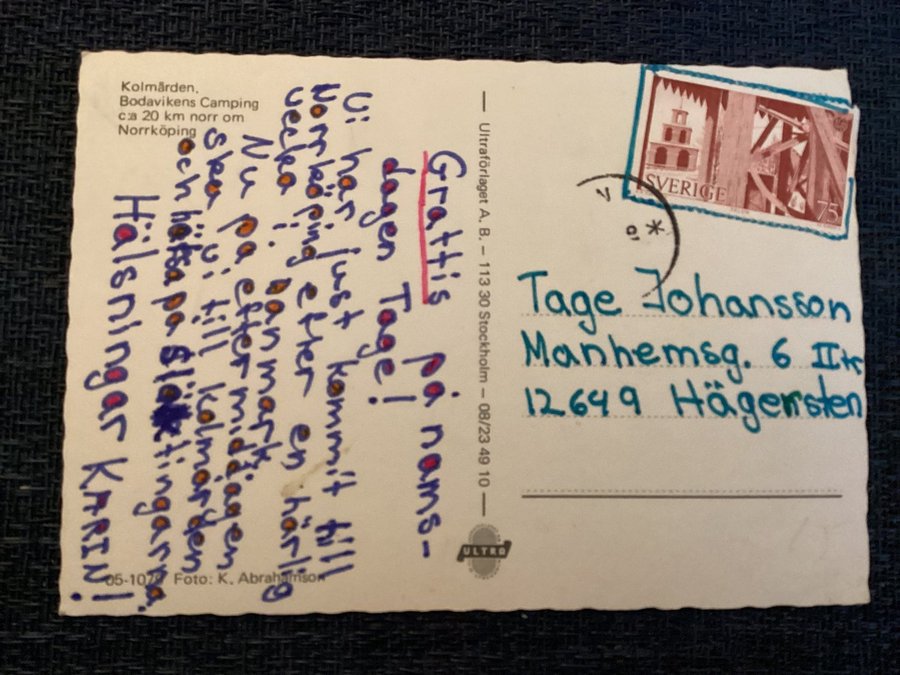 Kolmården.
Bodavikens Camping
c:a 20 km norr om
Norrköping
Grattis på nams-
dagen Tage!
Vi har just kommit till
Norrköping efter en härlig
vecka i Danmark.
Nu på eftermiddagen
ska vi till Kolmården
och hälsa på släktingarna.
Hälsningar KARIN!
Foto: K. Abrahamson
Ultraförlaget A. B. – 113 30 Stockholm – 08/23 49 10
ULTRA
SVERIGE
75
Tage Johansson
Manhemsg. 6 II tr
12649 Hägersten